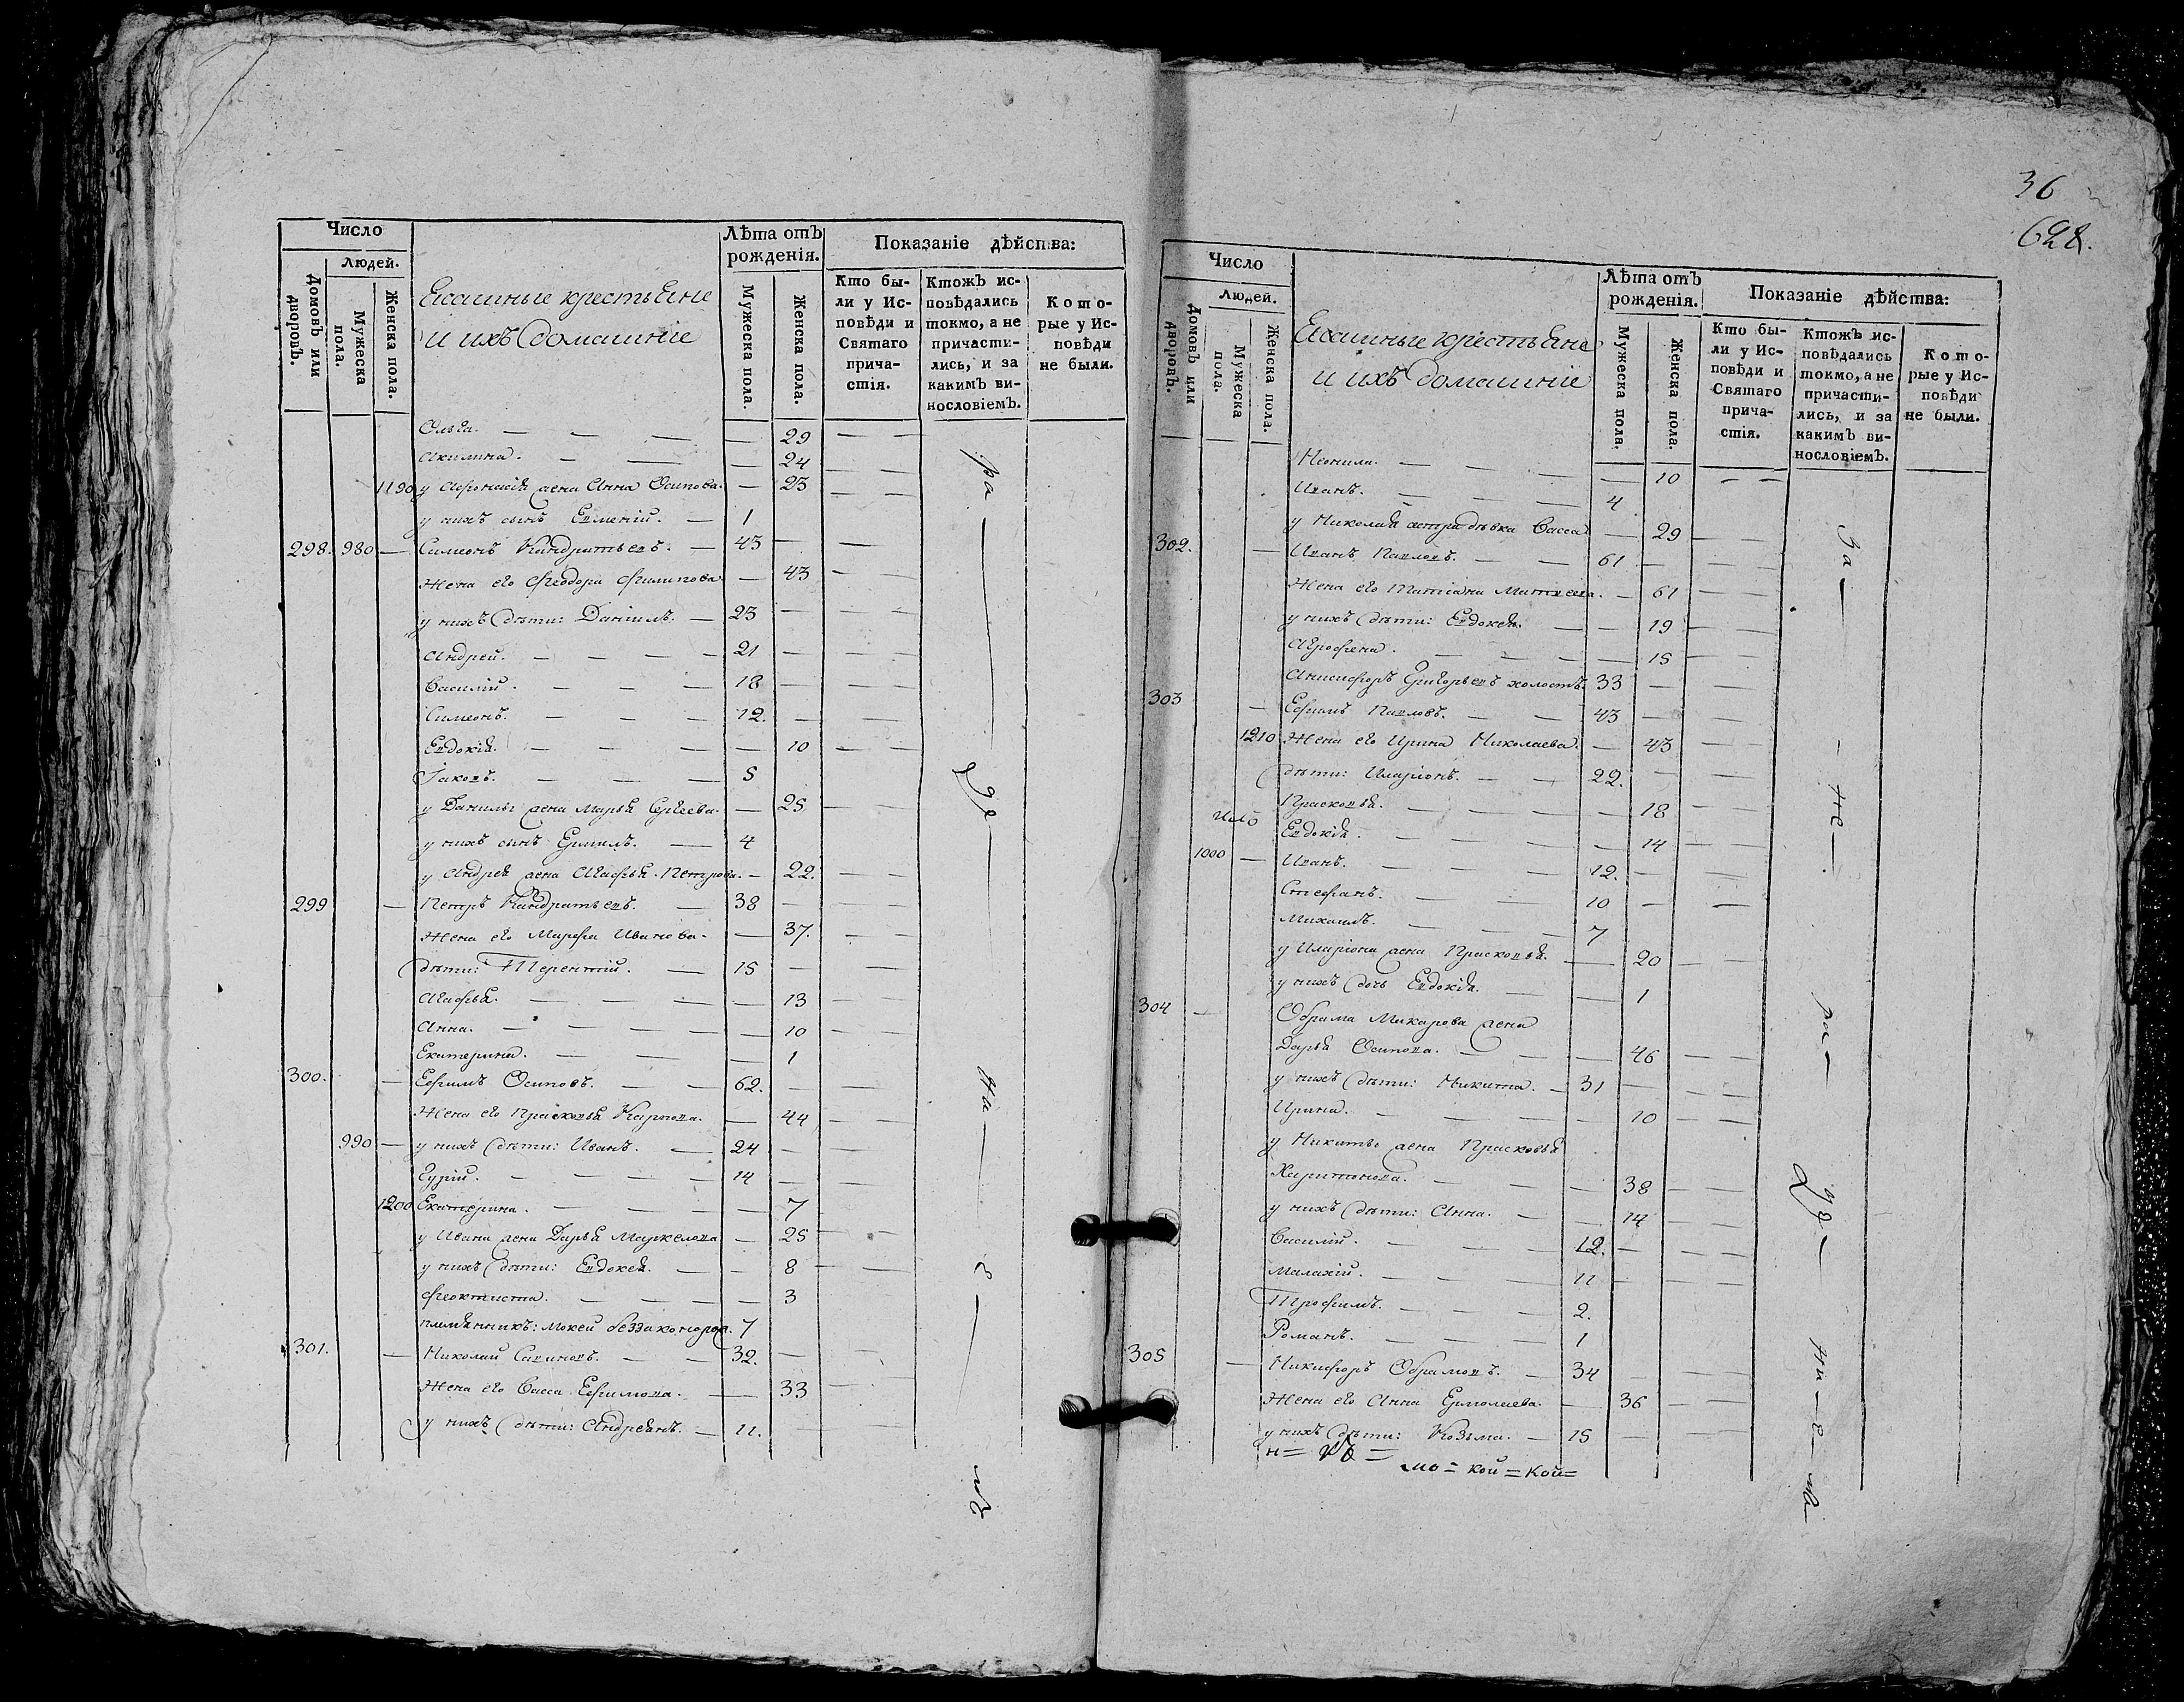 Число
Людей.
Домовъ или дворовъ.
Мужеска пола.
Женска пола.
Ясашные крестьяне
и ихъ домашніе
Лѣта отъ
рожденія.
Мужеска пола.
Женска пола.
Показаніе дѣйства:
Кто бы-
ли у Ис-
повѣди и
Святаго
прича-
стія.
Ктожъ ис-
повѣдались
токмо, а не
причасти-
лись, и за
какимъ ви-
нословіемъ.
Кото-
рые у Ис-
повѣди
не были.
Ольга. — — — — 29 — —
Акилина. — — — 24 — —
1190 у Афонасія жена Анна Осипова. — 23 — —
у нихъ сынъ Евменій. — 1
298. 980 — Симеонъ Киндратьевъ. — 43 — —
Жена его Феодора Филипова — 43 — —
у нихъ дѣти: Даніилъ. — 23 — —
Андрей. — — — — 21 — — —
Василій. — — — 18 — — —
Симеонъ. — — — 12. — —
Евдокія. — — — — 10 — —
Іаковъ. — — — 5
у Данилы жена Марья Сергеева. — 25 — —
у нихъ сынъ Ермилъ. — 4
у Андрея жена Агафья Петрова. — 22. — —
299 — Петръ Киндратьевъ. — 38 — — —
Жена его Марфа Иванова. — 37. — —
дѣти: Терентій. — 15 — —
Агафья. — — — — 13 — —
Анна. — — — — — 10 — —
Екатерина. — — — 1
300. — Ефимъ Осиповъ. — — 62. — —
Жена его Прасковья Карпова. — 44 — —
990 — у нихъ дѣти: Иванъ. — 24 — —
Гурій. — — — — 14 — —
1200 Екатерина. — — — — 7
у Ивана жена Дарья Маркелова — 25 — —
у нихъ дѣти: Евдокея. — — 8 — —
Феоктиста. — — — — 3
племянникъ: Мокей беззаконорож. 7
301. — Николай Савиновъ. — — 32. — —
Жена его Васса Ефимова. — 33 — —
у нихъ дѣти: Андреянъ. — 11. — —
36
Число
Людей.
Домовъ или дворовъ.
Мужеска пола.
Женска пола.
Ясашные крестьяне
и ихъ домашніе
Лѣта отъ
рожденія.
Мужеска пола.
Женска пола.
Показаніе дѣйства:
Кто бы-
ли у Ис-
повѣди и
Святаго
прича-
стія.
Ктожъ ис-
повѣдались
токмо, а не
причасти-
лись, и за
какимъ ви-
нословіемъ.
Кото-
рые у Ис-
повѣди
не были.
Неонила. — — — — 10 — —
Иванъ. — — — 4
у Николая сестра дѣвка Васса — 29 — —
302. — Иванъ Павловъ. — — 61 — — —
Жена его Татіана Матвеева. — 61 — —
у нихъ дѣти: Евдокея. — — 19 — —
Агрофена. — — — — 15 — —
Анисифоръ Григорьевъ холостъ. 33 — —
303 — Ефимъ Павловъ. — — 43 — —
1210 Жена его Ирина Николаева. — 43 — —
дѣти: Иларіонъ. — — 22. — —
Прасковья. — — — — 18 — —
Евдокія. — — — — 14 — —
1000 — Иванъ. — — — 12. — —
Стефанъ. — — 10 — —
Михаилъ. — — — 7
у Иларіона жена Прасковья. — 20 — —
у нихъ дочь Евдокія. — — 1
304 — Обрама Макарова жена
Дарья Осипова. — — — 46 — —
у нихъ дѣти: Никита. — 31 — —
Ирина. — — — — 10 — —
у Никиты жена Прасковья
Харитонова. — — — 38 — —
у нихъ дѣти: Анна. — — 14 — —
Василій. — — — 12. — — —
Малахій. — — — 11 — — —
Трофимъ. — — — 2.
Романъ. — — — 1
305 — Никифоръ Обрамовъ. — 34 — —
Жена его Анна Ермолаева. — 36 — —
у нихъ дѣти: Козьма. — 15 — —
мо = кой = кой =